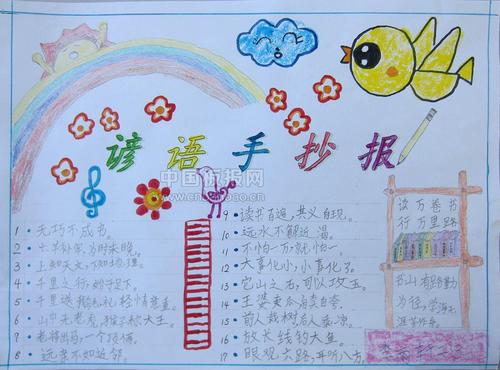 谚语手抄报
中国板报网
1 无巧不成书。
2 亡羊补牢,为时未晚。
3 上知天文,下知地理。
4 千里之行,始于足下。
5 千里送鹅毛,礼轻情意重。
6 山中无老虎,猴子称大王。
7 老将出马,一个顶俩。
8 远亲不如近邻。
9 读书百遍,其义自现。
10 远水不解近渴。
11 不怕一万,就怕一。
12 大事化小,小事化了。
13 它山之石,可以攻玉。
14 王婆卖瓜,自卖自夸。
15 前人栽树,后人乘凉。
16 放长线钓大鱼。
17 眼观六路,耳听八方。
读万卷书
行万里路
书山有路勤
为径,学海无
涯苦作舟。